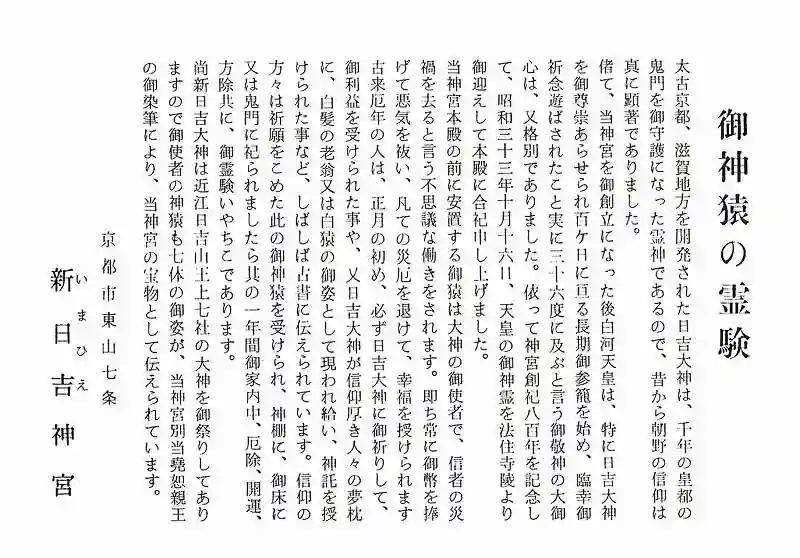 御神猿の霊験
太古京都、滋賀地方を開発された日吉大神は、千年の皇都の
鬼門を御守護になった霊神であるので、昔から朝野の信仰は
真に顕著でありました。
偖て、当神宮を御創立になった後白河天皇は、特に日吉大神
を御尊崇あらせられ百ケ日に亘る長期御参籠を始め、臨幸御
祈念遊ばされたこと実に三十六度に及ぶと言う御敬神の大御
心は、又格別でありました。依って神宮創祀八百年を記念し
て、昭和三十三年十月十六日、天皇の御神霊を法住寺陵より
御迎えして本殿に合祀申し上げました。
当神宮本殿の前に安置する御猿は大神の御使者で、信者の災
禍を去ると言う不思議な働きをされます。即ち常に御幣を捧
げて悪気を祓い、凡ての災厄を退けて、幸福を授けられます
古来厄年の人は、正月の初め、必ず日吉大神に御祈りして、
御利益を受けられた事や、又日吉大神が信仰厚き人々の夢枕
に、白髪の老翁又は白猿の御姿として現われ給い、神託を授
けられた事など、しばしば古書に伝えられています。信仰の
方々は祈願をこめた此の御神猿を受けられ、神棚に、御床に
又は鬼門に祀られましたら其の一年間御家内中、厄除、開運、
方除共に、御霊験いやちこであります。
尚新日吉大神は近江日吉山王上七社の大神を御祭りしてあり
ますので御使者の神猿も七体の御姿が、当神宮別当堯恕親王
の御染筆により、当神宮の宝物として伝えられています。
京都市東山七条
新日吉神宮
いまひえ